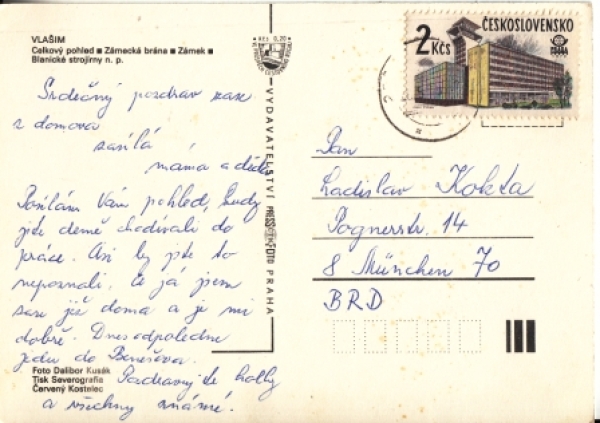 VLAŠIM
Celkový pohled ■ Zámecká brána ■ Zámek ■
Blanické strojírny n. p.
Kčs 0,20
2 Kčs
ČESKOSLOVENSKO
PRAHA
VYDAVATELSTVÍ PRESSFOTO PRAHA
Srdečný pozdrav zase
z domova
zasílá
máma a děda
Posílám Vám pohled, kudy
jste denně chodívali do
práce. Asi by jste to
nepoznali. Že já jsem
zase již doma a je mi
dobře. Dnes odpoledne
jedu do Benešova.
Pozdravuj te holky
a všechny známé.
Foto Dalibor Kusák
Tisk Severografia
Červený Kostelec
Pan
Ladislav Kokta
Pognerstr. 14
8 München 70
BRD